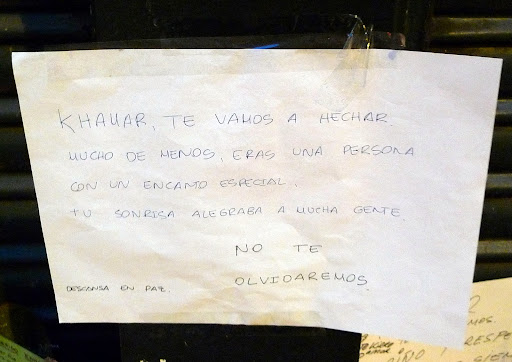 KHAWAR, TE VAMOS A HECHAR
MUCHO DE MENOS, ERAS UNA PERSONA
CON UN ENCANTO ESPECIAL.
TU SONRISA ALEGRABA A MUCHA GENTE.
NO TE
OLVIDAREMOS.
DESCANSA EN PAZ.
RESPE